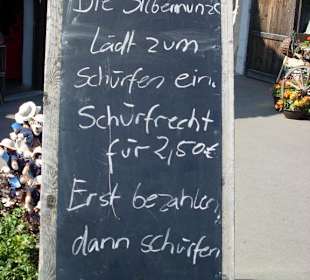 Die Silbermünze
Lädt zum
Schürfen ein.
Schürfrecht
für 2,50€
Erst bezahlen,
dann schürfen